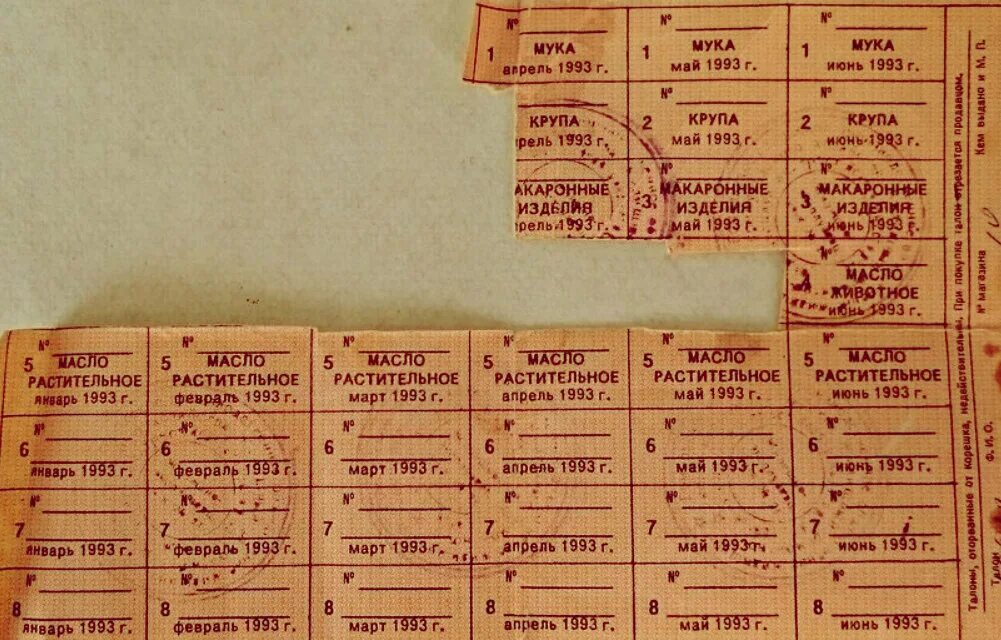 № № №
1 МУКА 1 МУКА 1 МУКА
апрель 1993 г. май 1993 г. июнь 1993 г.
№ №
КРУПА 2 КРУПА 2 КРУПА
рель 1993 г. май 1993 г. июнь 1993 г.
№ №
АКАРОННЫЕ МАКАРОННЫЕ МАКАРОННЫЕ
ИЗДЕЛИЯ 3 ИЗДЕЛИЯ 3 ИЗДЕЛИЯ
рель 1993 г. май 1993 г. июнь 1993 г.
№
МАСЛО
ЖИВОТНОЕ
июнь 1993 г.
№ № № № № №
5 МАСЛО 5 МАСЛО 5 МАСЛО 5 МАСЛО 5 МАСЛО 5 МАСЛО
РАСТИТЕЛЬНОЕ РАСТИТЕЛЬНОЕ РАСТИТЕЛЬНОЕ РАСТИТЕЛЬНОЕ РАСТИТЕЛЬНОЕ РАСТИТЕЛЬНОЕ
январь 1993 г. февраль 1993 г. март 1993 г. апрель 1993 г. май 1993 г. июнь 1993 г.
№ № № № № №
6 6 6 6 6 6
январь 1993 г. февраль 1993 г. март 1993 г. апрель 1993 г. май 1993 г. июнь 1993 г.
№ № № № № №
7 7 7 7 7 7
январь 1993 г. февраль 1993 г. март 1993 г. апрель 1993 г. май 1993 г. июнь 1993 г.
№ № № № № №
8 8 8 8 8 8
январь 1993 г. февраль 1993 г. март 1993 г. апрель 1993 г. май 1993 г. июнь 1993 г.
Талоны, оторванные от корешка, недействительны. При покупке талон отрезается продавцом.
Ф. И. О. № магазина Кем выдано и М. П.